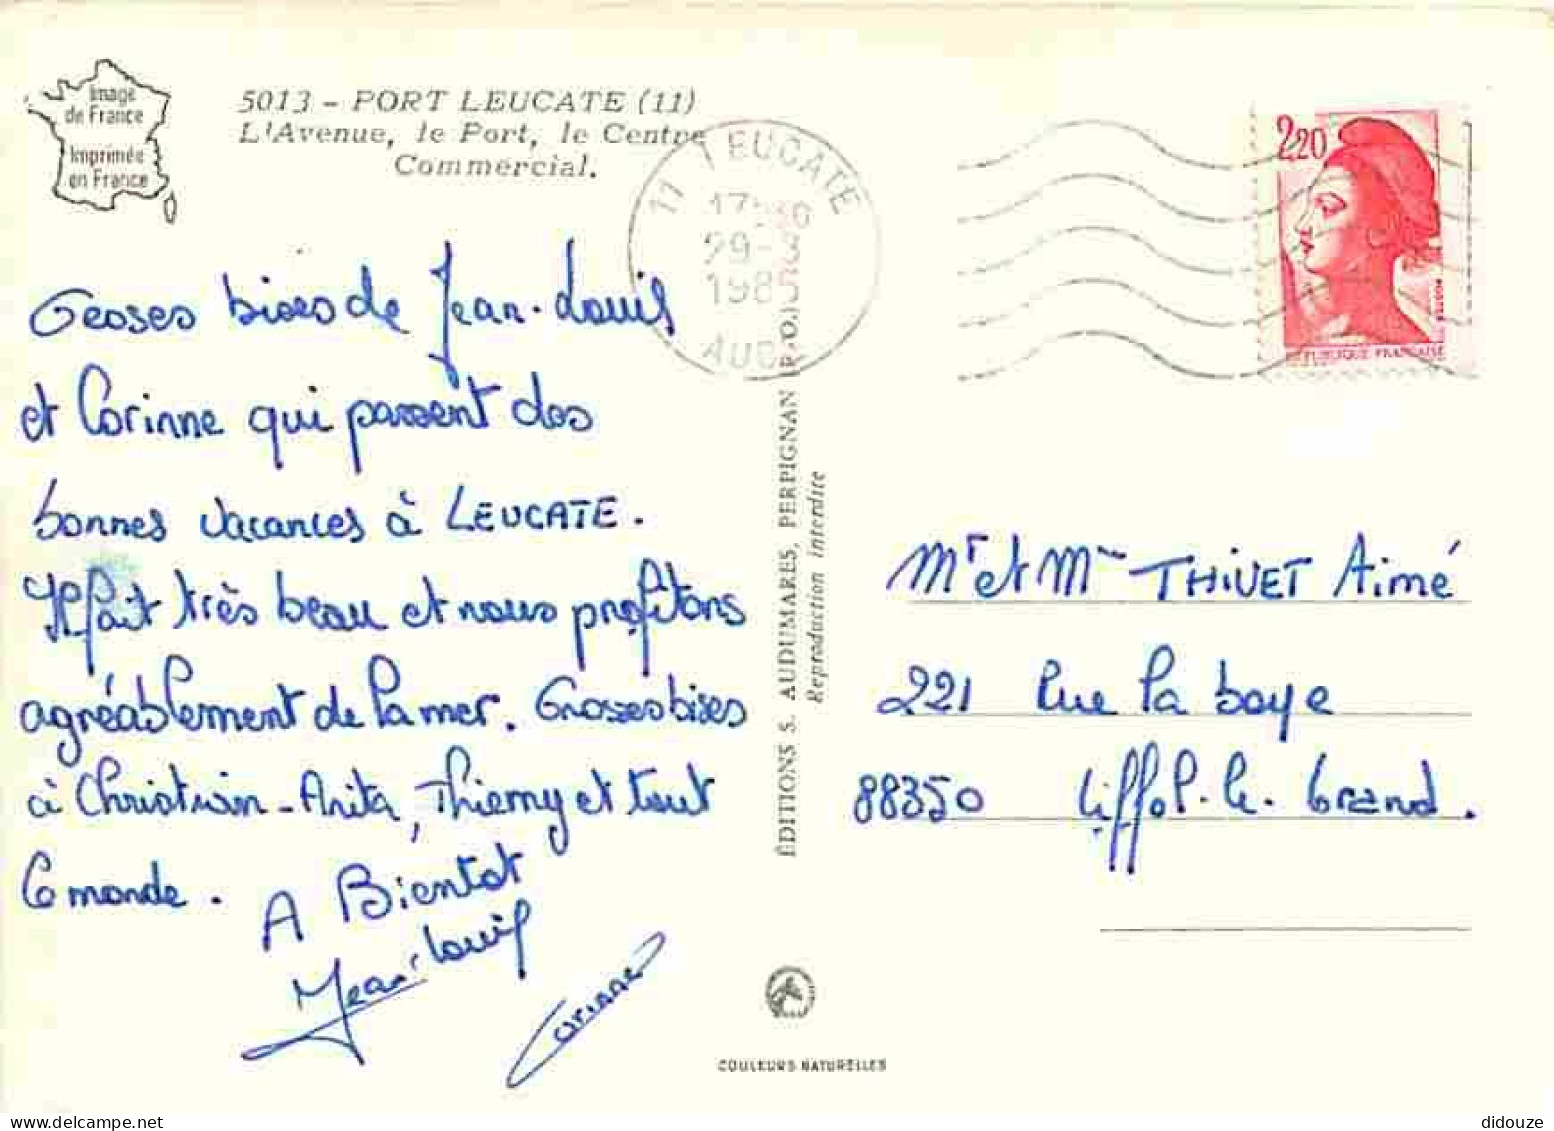 Image
de France
Imprimée
en France
5013 - PORT LEUCATE (11)
L'Avenue, le Port, le Centre
Commercial.
11 LEUCATE
29-
AUDE
2,20
POSTES
REPUBLIQUE FRANÇAISE
Grosses bises de Jean-Louis
et Corinne qui passent des
bonnes vacances à LEUCATE.
Il fait très beau et nous profitons
agréablement de la mer. Grosses bises
à Christian - Anita, Thierry et tout
le monde.
A Bientot
Jean-Louis
Corinne
ÉDITIONS S. AUDUMARES, PERPIGNAN (P.-O.)
Reproduction interdite
Mr et Mme THIVET Aimé
221 Rue la boye
88350 Liffol-le-Grand.
COULEURS NATURELLES
didouze